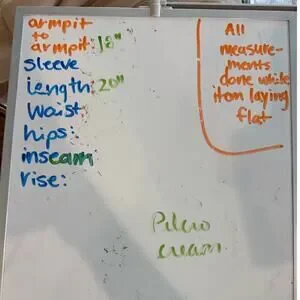 armpit
to
armpit: 18"
sleeve
length: 20"
Waist
hips:
inseam
rise:
All
measure-
ments
done while
item laying
flat
cream